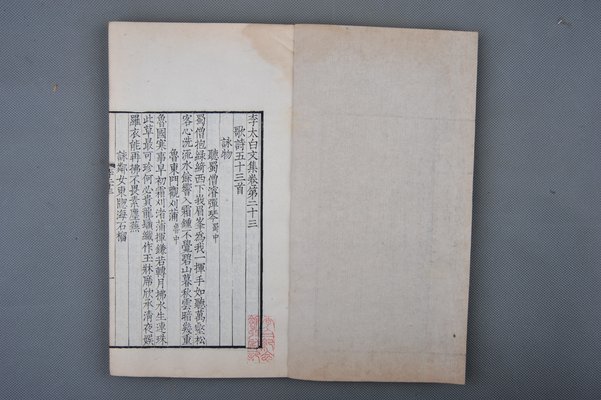 李太白文集卷第二十三
歌詩五十三首
詠物
聽蜀僧濬彈琴 蜀中
蜀僧抱綠綺西下峩眉峯為我一揮手如聽萬壑松
客心洗流水餘響入霜鍾不覺碧山暮秋雲暗幾重
魯東門觀刈蒲 魯中
魯國寒事早初霜刈渚蒲揮鎌若轉月拂水生連珠
此草最可珍何必貴龍鬚織作玉牀席欣承清夜娛
羅衣能再拂不畏素塵蕪
詠鄰女東窗海石榴